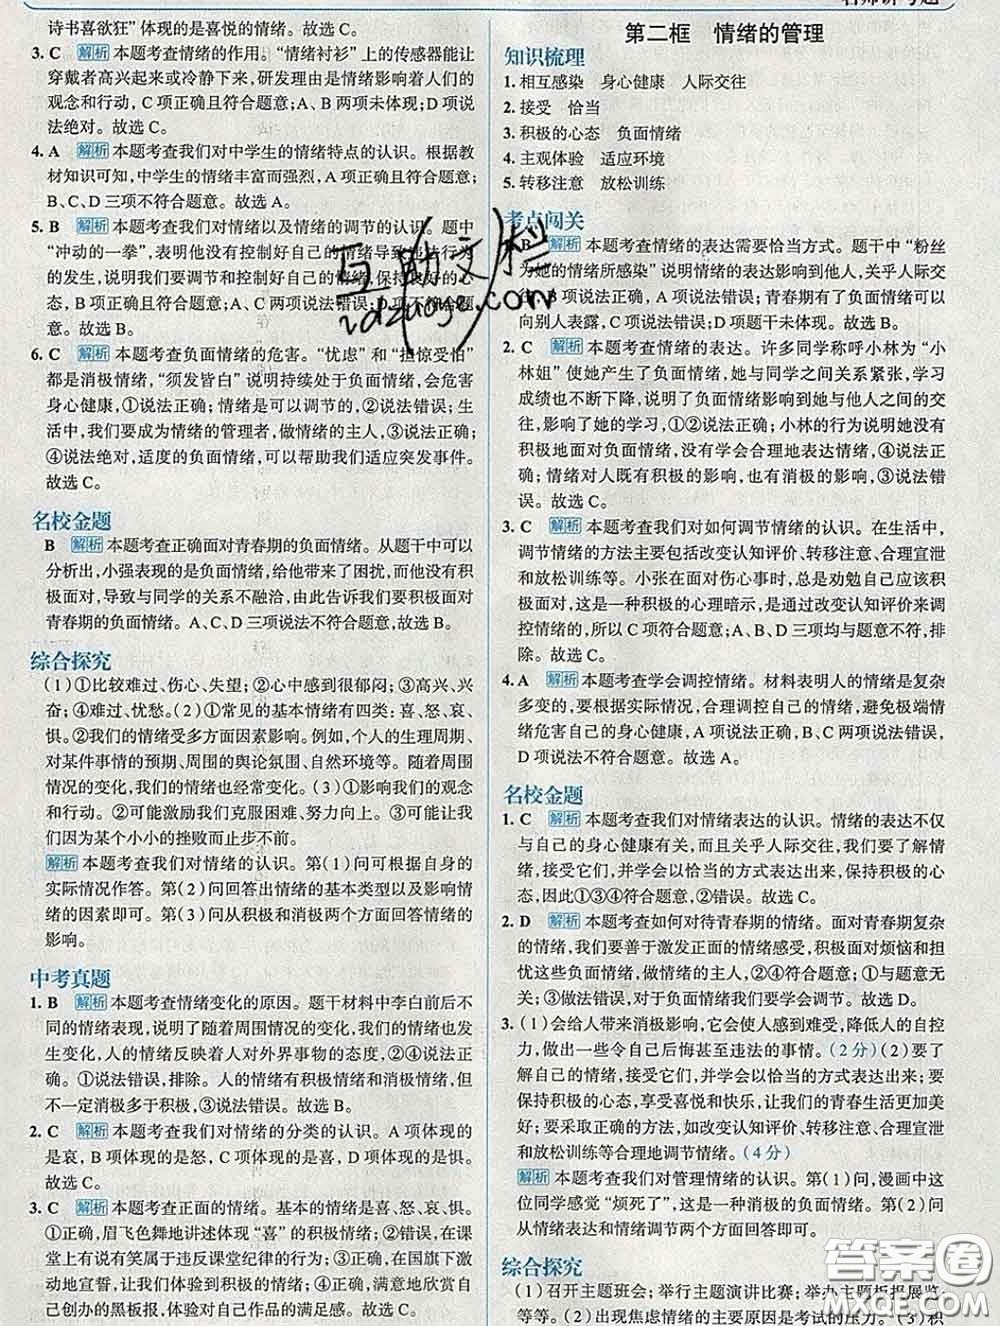 诗书喜欲狂”体现的是喜悦的情绪。故选C。
3. C 解析 本题考查情绪的作用。“情绪衬衫”上的传感器能让
穿戴者高兴起来或冷静下来，研发理由是情绪影响着人们的
观念和行动，C项正确且符合题意；A、B两项未体现；D项说
法绝对。故选C。
4. A 解析 本题考查我们对中学生的情绪特点的认识。根据教
材知识可知，中学生的情绪丰富而强烈，A项正确且符合题意；
B、C、D三项不符合题意。故选A。
5. B 解析 本题考查我们对情绪以及情绪的调节的认识。题中
“冲动的一拳”，表明他没有控制好自己的情绪导致他行为
的发生，说明我们要调节并控制好自己的情绪，保持良好的心
态，B项正确且符合题意；A、C两项说法错误；D项不符合题
意。故选B。
6. C 解析 本题考查负面情绪的危害。“忧虑”和“担惊受怕”
都是消极情绪，“须发皆白”说明持续处于负面情绪，会危害
身心健康，①说法正确；情绪是可以调节的，②说法错误；生
活中，我们要成为情绪的管理者，做情绪的主人，③说法正确；
④说法绝对，适度的负面情绪，可以帮助我们适应突发事件。
故选C。
名校金题
B 解析 本题考查正确面对青春期的负面情绪。从题干中可以
分析出，小强表现的是负面情绪，给他带来了困扰，而他没有积
极面对，导致与同学的关系不融洽，由此告诉我们要积极面对
青春期的负面情绪。A、C、D三项说法不符合题意，故选B。
综合探究
（1）①比较难过、伤心、失望；②心中感到很郁闷；③高兴、兴
奋；④难过、忧愁。（2）①常见的基本情绪有四类：喜、怒、哀、
惧。②我们的情绪受多方面因素影响。例如，个人的生理周期、
对某件事情的预期、周围的舆论氛围、自然环境等。随着周围
情况的变化，我们的情绪也经常变化。（3）①影响我们的观念
和行动。②可能激励我们克服困难、努力向上。③可能让我
们因为某个小小的挫败而止步不前。
解析 本题考查我们对情绪的认识。第（1）问可根据自身的
实际情况作答。第（2）问回答出情绪的基本类型以及影响情
绪的因素即可。第（3）问从积极和消极两个方面回答情绪的
影响。
中考真题
1. B 解析 本题考查情绪变化的原因。题干材料中李白前后不
同的情绪表现，说明了随着周围情况的变化，我们的情绪也发
生变化，人的情绪反映着人对外界事物的态度，②④说法正
确。①说法错误，排除。人的情绪有积极情绪和消极情绪，但
不一定消极多于积极，③说法错误。故选B。
2. C 解析 本题考查我们对情绪的分类的认识。A项体现的
是哀，B项体现的是怒，C项体现的是喜，D项体现的是惧。
故选C。
3. C 解析 本题考查正面的情绪。基本的情绪是喜、怒、哀、惧。
①正确，眉飞色舞地讲述体现“喜”的积极情绪；②错误，在课
堂上有说有笑属于违反课堂纪律的行为；③正确，在国旗下激
动地宣誓，让我们体验到积极情绪；④正确，满意地欣赏自
己创办的黑板报，体验对自己作品的满足感。故选C。
第二框 情绪的管理
知识梳理
1. 相互感染 身心健康 人际交往
2. 接受 恰当
3. 积极的心态 负面情绪
4. 主观体验 适应环境
5. 转移注意 放松训练
考点闯关
B 解析 本题考查情绪的表达需要恰当方式。题干中“粉丝
为她的情绪所感染”说明情绪的表达影响到他人，关乎人际交
往，B项说法正确，A项说法错误；青春期有了负面情绪可以
向别人表露，C项说法错误；D项题干未体现。故选B。
2. C 解析 本题考查情绪的表达。许多同学称呼小林为“小
林姐”使她产生了负面情绪，她与同学之间关系紧张，学习
成绩也不断下降，说明了负面情绪影响到她与他人之间的交
往，影响了她的学习，①②说法正确；小林的行为说明她没有
积极地面对负面情绪，没有学会合理地表达情绪，④说法正
确；情绪对人既有积极的影响，也有消极的影响，③说法错
误。故选C。
3. C 解析 本题考查我们对如何调节情绪的认识。在生活中，
调节情绪的方法主要包括改变认知评价、转移注意、合理宣泄
和放松训练等。小张在面对伤心事时，总是劝勉自己应该积
极面对，这是一种积极的心理暗示，是通过改变认知评价来调
控情绪的，所以C项符合题意；A、B、D三项均与题意不符，排
除。故选C。
4. A 解析 本题考查学会调控情绪。材料表明人的情绪是复杂
多变的，要根据实际情况，合理调控自己的情绪，避免极端情
绪危害自己的身心健康，A项说法正确；B、C两项说法错误，
D项说法不符合题意。故选A。
名校金题
1. C 解析 本题考查我们对情绪表达的认识。情绪的表达不仅
与自己的身心健康有关，而且关乎人际交往，我们要了解情
绪，接受它们，并学会以恰当的方式表达出来，保持积极的心
态，因此①③④符合题意，②错误。故选C。
2. D 解析 本题考查如何对待青春期的情绪。面对青春期复杂
的情绪，我们要善于激发正面的情绪感受，积极面对烦恼和担
忧这些负面情绪，做情绪的主人，②④符合题意；①与题意无
关；③做法错误，对于负面情绪我们要学会调节。故选D。
3. （1）会给人带来消极影响，它会使人感到难受，降低人的自控
力，做出一些令自己后悔甚至违法的事情。（2分）（2）要了
解自己的情绪，接受它们，并学会以恰当的方式表达出来；要
保持积极的心态，享受喜悦和快乐，让我们的青春生活更加美
好；要采取正确的方法，如改变认知评价、转移注意、合理宣泄、
放松训练等合理地调节情绪。（4分）
解析 本题考查我们对管理情绪的认识。第（1）问，漫画中这
位同学感觉“烦死了”，这是一种消极的负面情绪。第（2）问
从情绪表达和情绪调节两个方面回答即可。
综合探究
（1）召开主题班会；举行主题演讲比赛；举办主题板报展览
等等。（2）出现焦虑情绪的主要原因是考试的压力。（3）积
互助文栏
答案圈
MXQE.COM